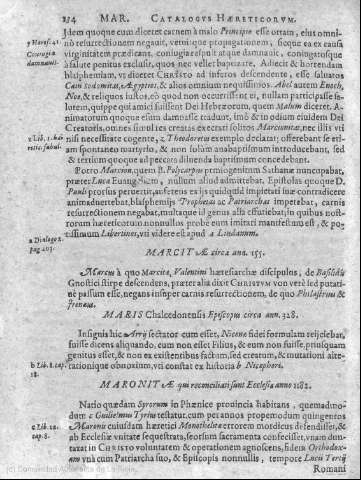 114 MAR. CATALOGUS HÆRETICORUM.
Idem quoque cum diceret carnem à malo Principio esse ortam, ejus omni-
y Hæres. 42. nò resurrectionem negavit, vetuitque propagationem, spe que ea ex causa
Conjugia virginitatem prædicans, conjugia respuit atque damnavit, conjugatosque
damnavit. à salute penitus exclusit, quos nec vellet baptizare. Adjecit &
blasphemiam, ut diceret CHRISTO ad inferos descendente, esse salvatos
Cain, Sodomitas, Ægyptios, & alios omnium nequissimos. Abel autem Enoch,
Noe, & reliquos justos, eò quod non occurrissent ei, nullam participasse sa-
lutem, quippe qui amici fuissent Dei Hebræorum, quem Malum diceret. A-
nimatorum quoque esum damnasse traduit, imò & in odium ejusdem Dei
Creatoris, omnes
z Lib. 1. hæ- nisi necessitate cogente, z Theodoretus exemplo declarat; offerebant se eti-
retic. fabul. am spontaneo martyrio, & non solùm anabaptismum introducebant, sed
& tertium quoque ad peccata diluenda baptismum concedebant.
Porro Marcion, quem B. Polycarpus primogenitum Sathanæ nuncupabat,
præter Lucæ Evangelium, nullum aliud admittebat. Epistolas quoque D.
Pauli prorsus pervertit, auferens ex ijs quidquid impietati suæ contradicere
animadverteret, blasphemijs Prophetas ac Patriarchas impetebat, carnis
resurrectionem negabat, multaque id genus alia effutiebat, in quibus nost-
rorum hæreticorum nonnullos probè eum imitari manifestum est, & po-
a Dialogo 2. tissimum Libertinos, uti videre est apud a Lindanum.
pag. 203.
MARCITÆ circa ann. 155.
Marcus à quo Marcitæ, Valentini hæresiarchæ discipulus, de Basilidis
Gnostici stirpe descendens, præter alia dixit CHRISTUM non verè sed putati-
vè passum esse, negans insuper carnis resurrectionem, de quo Philastrius &
Irenæus.
MARIS Chalcedonensis Episcopus circa ann. 328.
Insignis hic Arrij sectator cum esset, Nicænæ fidei formulam rejiciebat,
fuisse dicens aliquando, cum non esset Filius, & eum non fuisse, priusquam
genitus esset, & non ex existentibus factum, sed creatum, & mutationi alte-
b Lib. 8. cap. rationique obnoxium, uti constat ex historia b Nicephori.
18.
MARONITÆ qui reconciliati sunt Ecclesiæ anno 1182.
Natio quædam Syrorum in Phœnice provincia habitans, quemadmo-
dum c Guilielmus Tyrius testatur, cum per annos propemodum quingentos
c Lib. 22. Maronis cujusdam hæretici Monothelitæ errorem mordicus defendisset, &
cap. 8. ab Ecclesiæ unitate sequestrata, seorsum sacramenta confecisset, unam dun-
taxat in CHRISTO voluntatem & operationem agnoscens, fidem Orthodox-
am unà cum Patriarcha suo, & Episcopis nonnullis, tempore Lucij Tertij
Romani
(c) Comunidad Autónoma de La Rioja